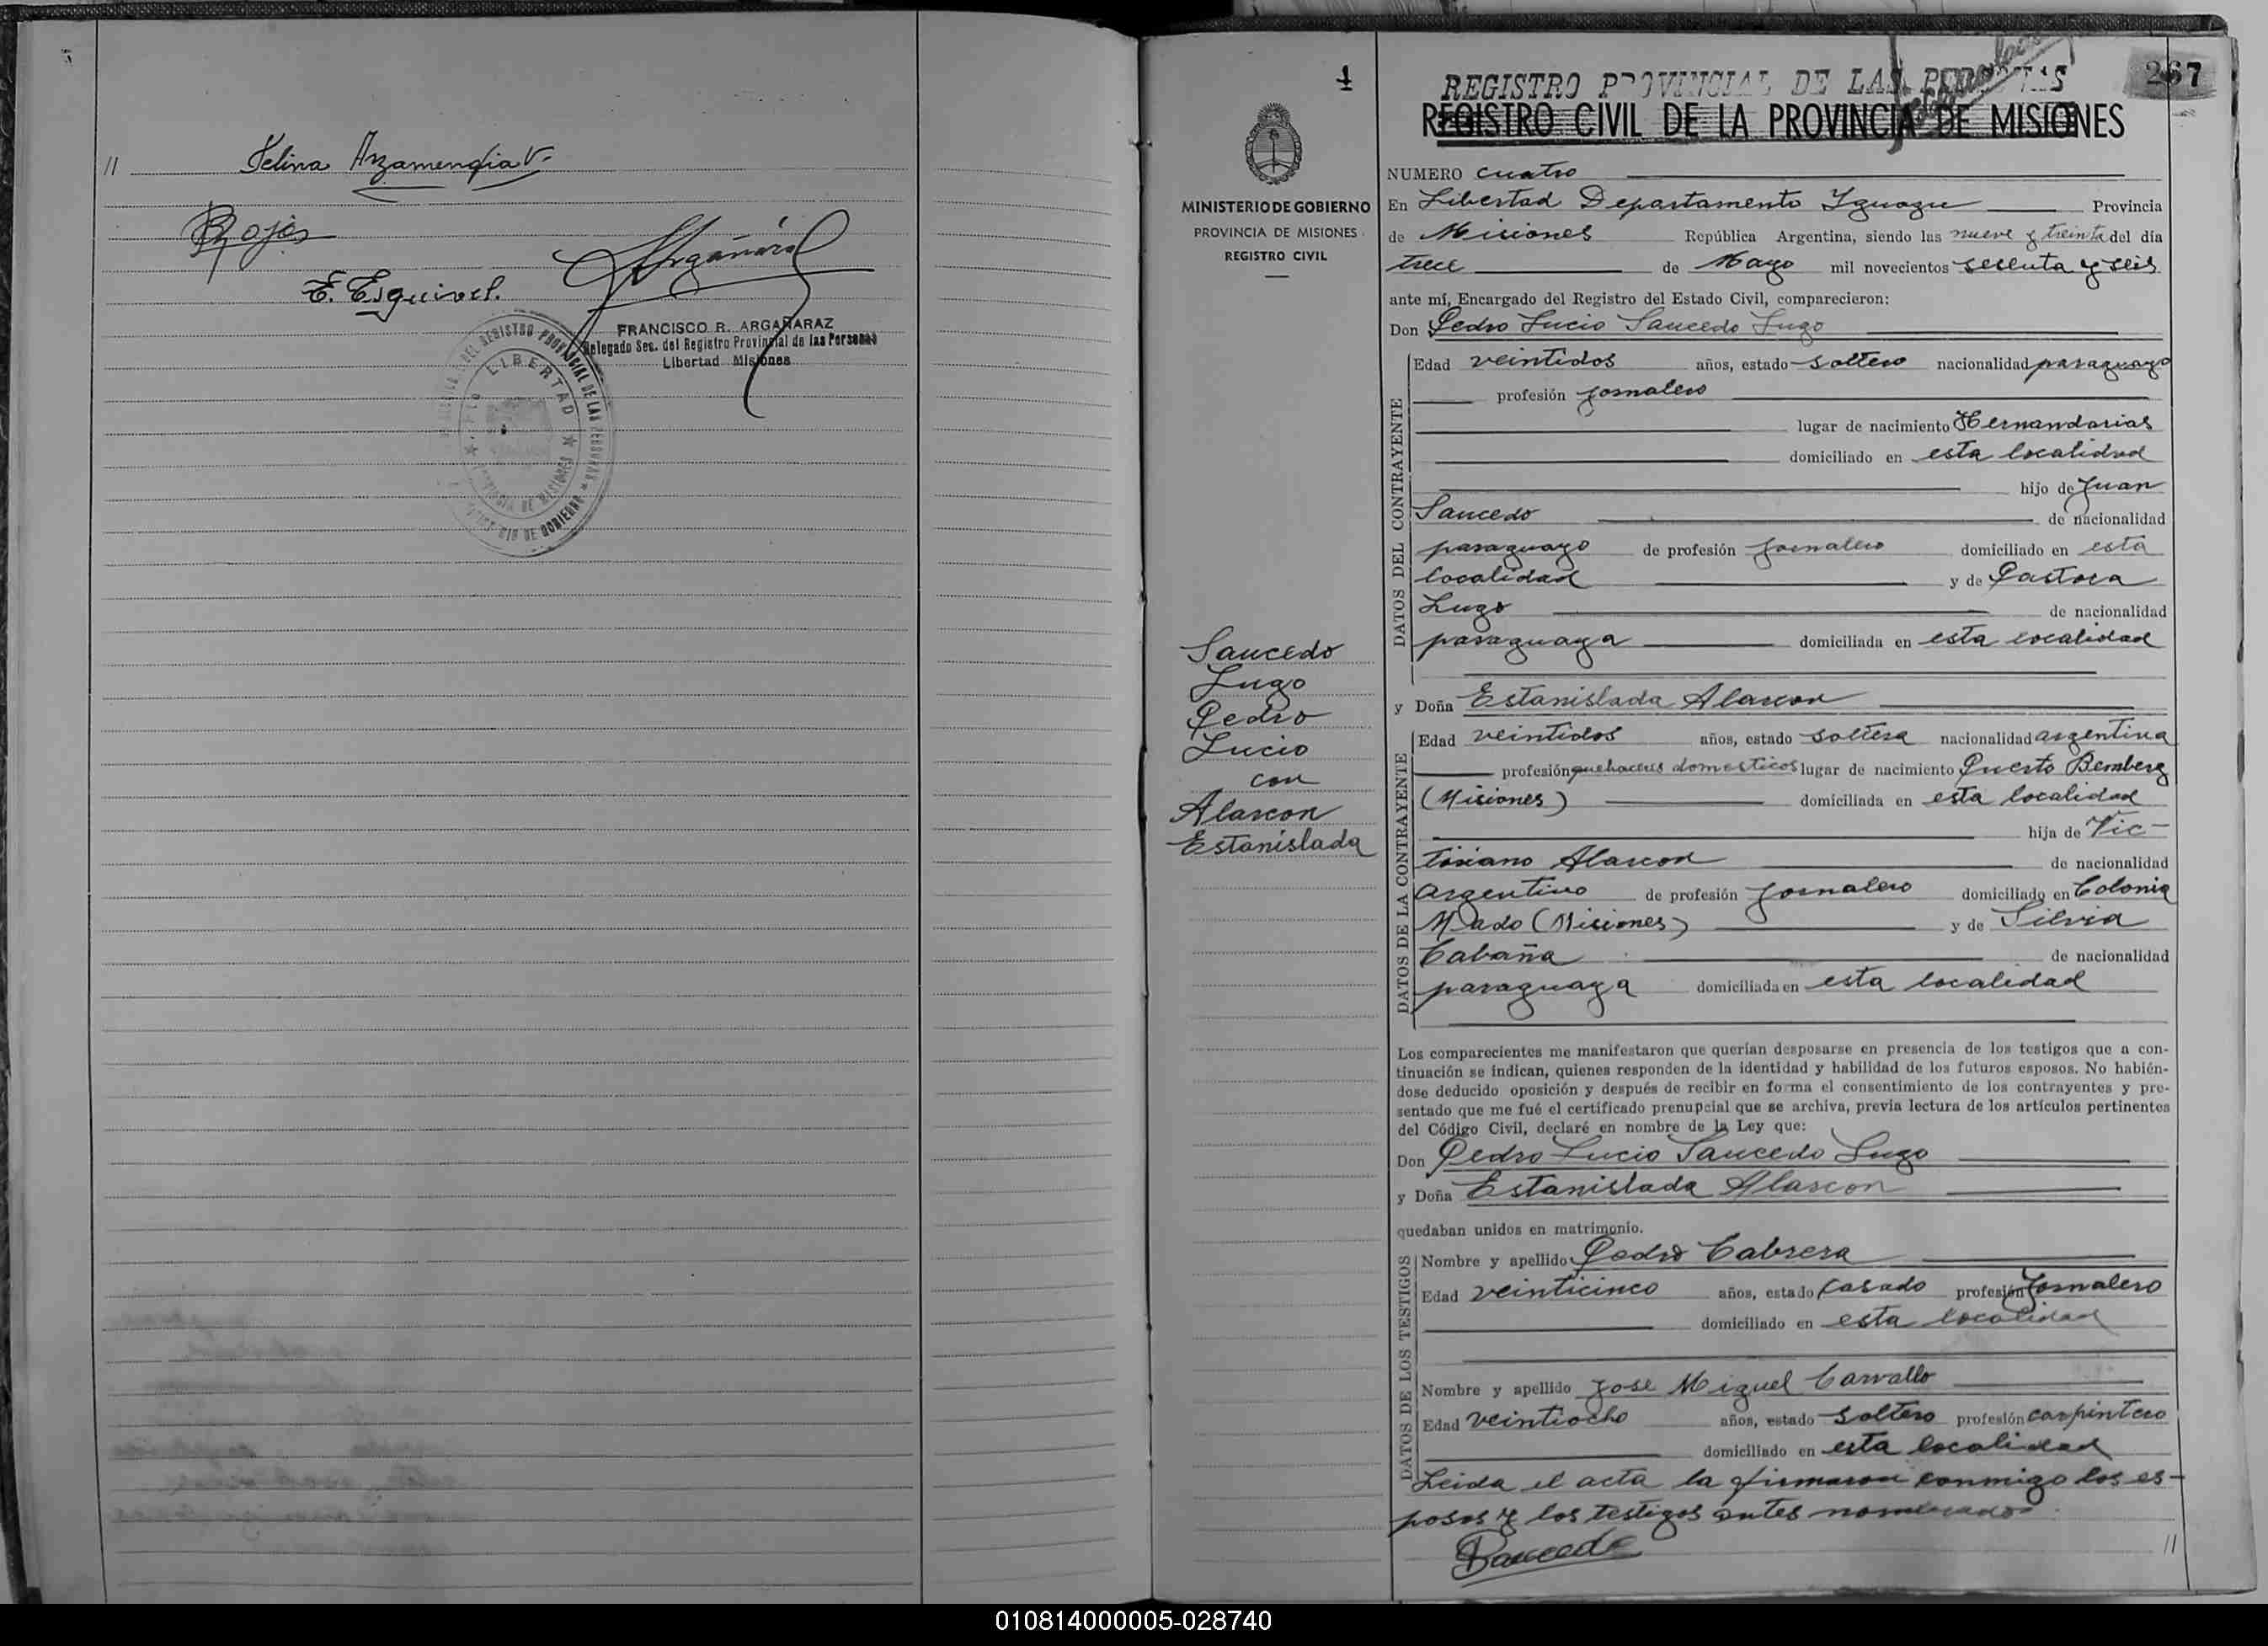 // Felina Arzamendia V.
Rojas
E. Esquivel.
FRANCISCO R. ARGAÑARAZ
Delegado Sec. del Registro Provincial de las Personas
Libertad Misiones
LIBERTAD
PROVINCIA DE MISIONES
4
MINISTERIO DE GOBIERNO
PROVINCIA DE MISIONES
REGISTRO CIVIL
Saucedo
Lugo
Pedro
Lucio
con
Alarcon
Estanislada
267
REGISTRO PROVINCIAL DE LAS PERSONAS
REGISTRO CIVIL DE LA PROVINCIA DE MISIONES
NUMERO cuatro
En Libertad Departamento Iguazu Provincia
de Misiones República Argentina, siendo las nueve y treinta del día
trece de Mayo mil novecientos sesenta y seis
ante mí, Encargado del Registro del Estado Civil, comparecieron:
Don Pedro Lucio Saucedo Lugo
DATOS DEL CONTRAYENTE
Edad veintidos años, estado soltero nacionalidad paraguayo
profesión jornalero
lugar de nacimiento Hernandarias
domiciliado en esta localidad
hijo de Juan
Saucedo de nacionalidad
paraguayo de profesión jornalero domiciliado en esta
localidad y de Pastora
Lugo de nacionalidad
paraguaya domiciliada en esta localidad
y Doña Estanislada Alarcon
DATOS DE LA CONTRAYENTE
Edad veintidos años, estado soltera nacionalidad argentina
profesión quehaceres domesticos lugar de nacimiento Puerto Bemberg
(Misiones) domiciliada en esta localidad
hija de Vic-
toriano Alarcon de nacionalidad
argentino de profesión jornalero domiciliado en Colonia
Mado (Misiones) y de Silvia
Cabaña de nacionalidad
paraguaya domiciliada en esta localidad
Los comparecientes me manifestaron que querían desposarse en presencia de los testigos que a con-
tinuación se indican, quienes responden de la identidad y habilidad de los futuros esposos. No habién-
dose deducido oposición y después de recibir en forma el consentimiento de los contrayentes y pre-
sentado que me fué el certificado prenupcial que se archiva, previa lectura de los artículos pertinentes
del Código Civil, declaré en nombre de la Ley que:
Don Pedro Lucio Saucedo Lugo
y Doña Estanislada Alarcon
quedaban unidos en matrimonio.
DATOS DE LOS TESTIGOS
Nombre y apellido Pedro Cabrera
Edad veinticinco años, estado casado profesión jornalero
domiciliado en esta localidad
Nombre y apellido Jose Miguel Carvallo
Edad veintiocho años, estado soltero profesión carpintero
domiciliado en esta localidad
Leida el acta la firmaron conmigo los es-
posos y los testigos antes nombrados.
Saucedo
//
010814000005-028740